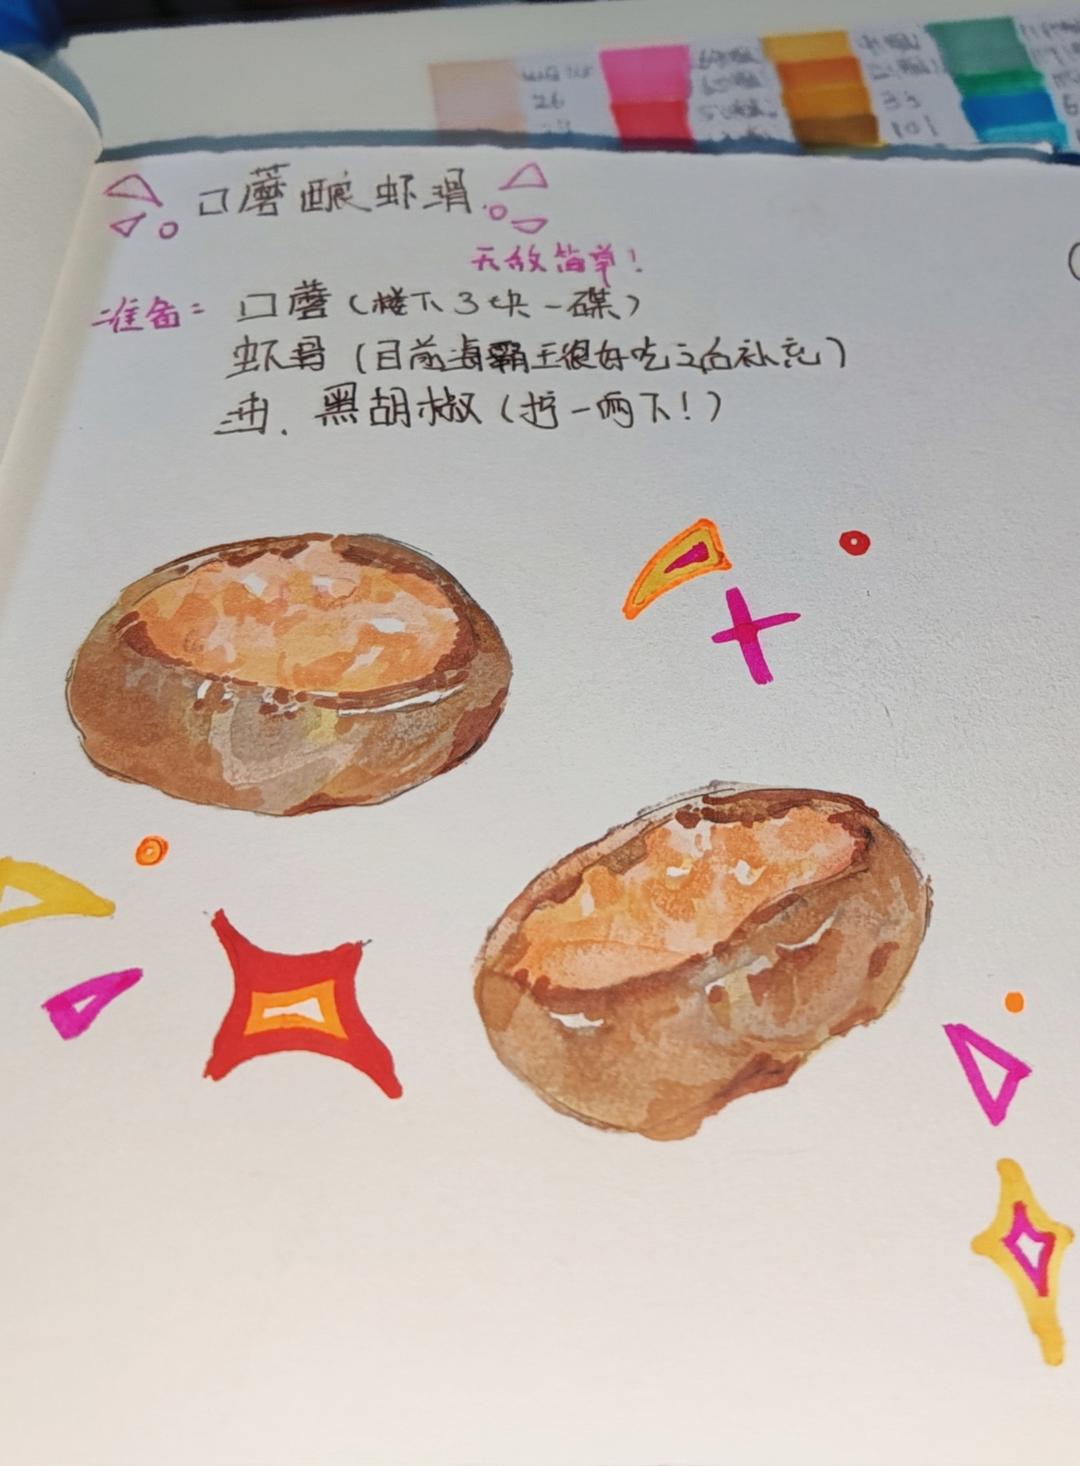 口蘑酿虾滑
无敌简单！
准备：口蘑（楼下3块一碟）
虾滑（目前海霸王很好吃之后补充）
油．黑胡椒（拧一两下！）
26
33
101